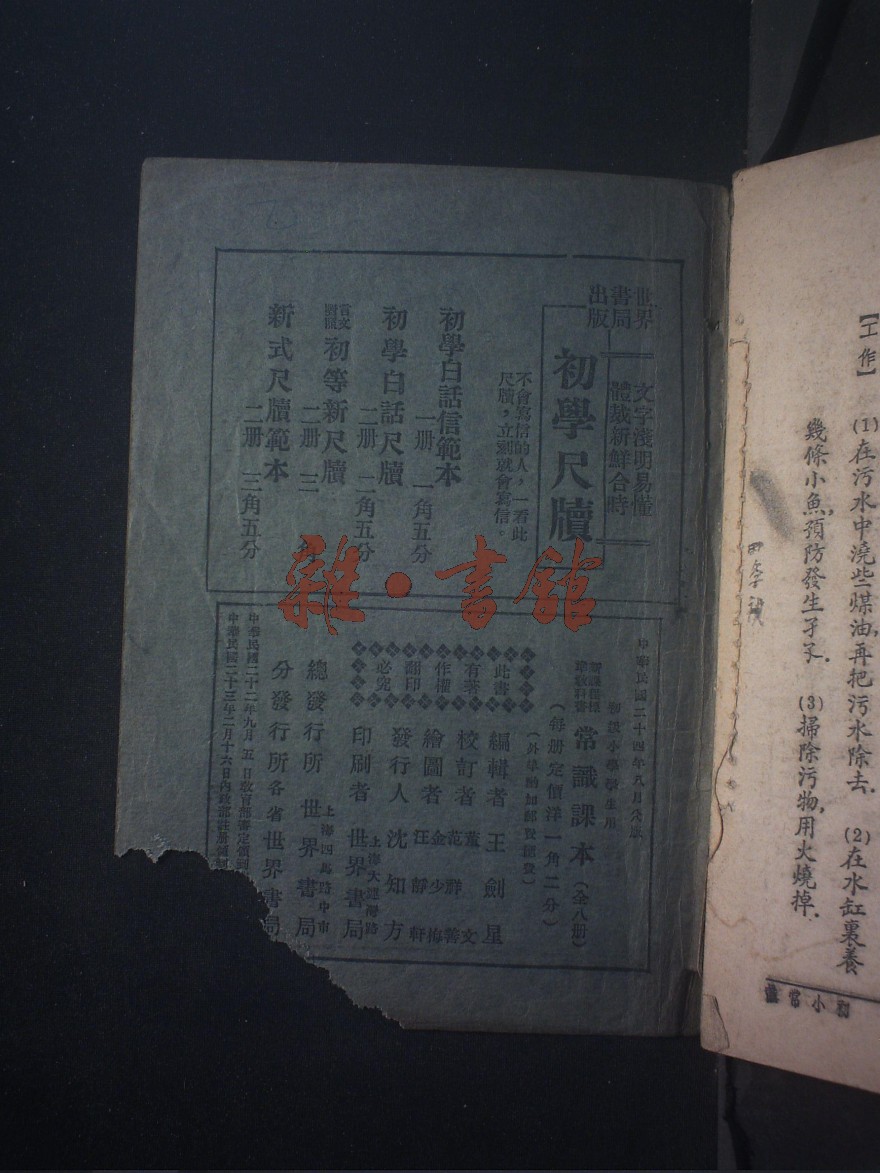 【工作】
(1)在污水中澆些煤油,再把污水除去. (2)在水缸裏養
幾條小魚,預防發生孑孓. (3)掃除污物,用火燒掉.
初小常識
世界
書局
出版
文字淺明易懂
體裁新鮮合時
初學尺牘
不會寫信的人,一看此
尺牘,立刻就會寫信。
初學白話信範本
一册 一角五分
初學白話尺牘
二册 二角五分
言文對照 初等新尺牘
二册 三
新式尺牘範本
二册 三角五分
雜·書館
中華民國二十四年八月
初級小學學生用
常識課本(全八册)
(每册定價洋一角二分)
(外埠酌加郵費匯費)
編輯者 王劍星
校訂者 董文 范祥善
繪圖者 金少梅 汪靜軒
發行人 沈知方
印刷者 上海大連灣路 世界書局
總發行所 上海四馬路中市 世界書局
分發行所 各省世界書局
此書
有著
作權
翻印
必究
中華民國二十二年九月五日教育部審定
中華民國二十三年二月十六日內政部註册